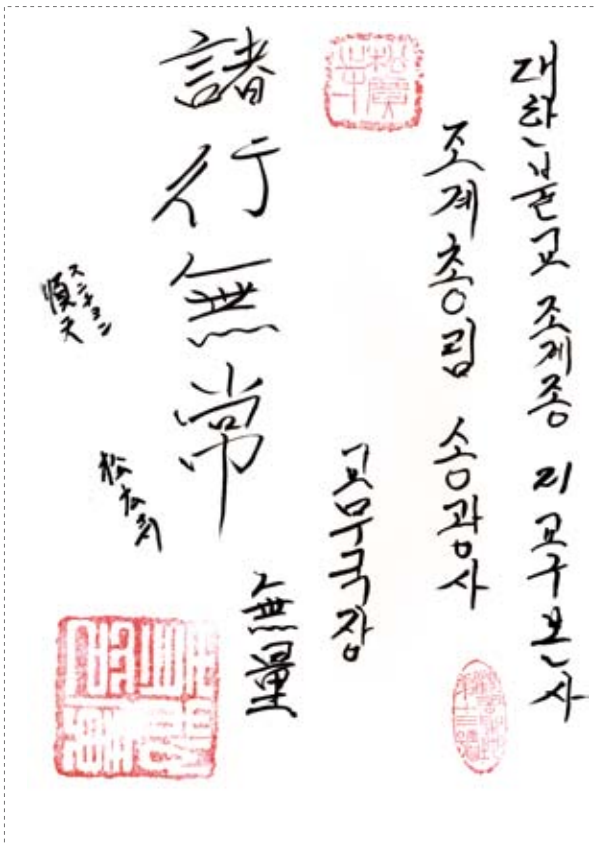 대한불교 조계종 21 교구본사
조계총림 송광사
교무국장
無量
諸行無常
松広寺
順天
スンチョン